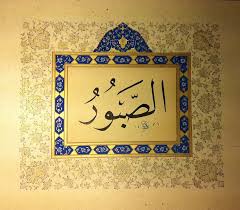 الصَّبُورُ